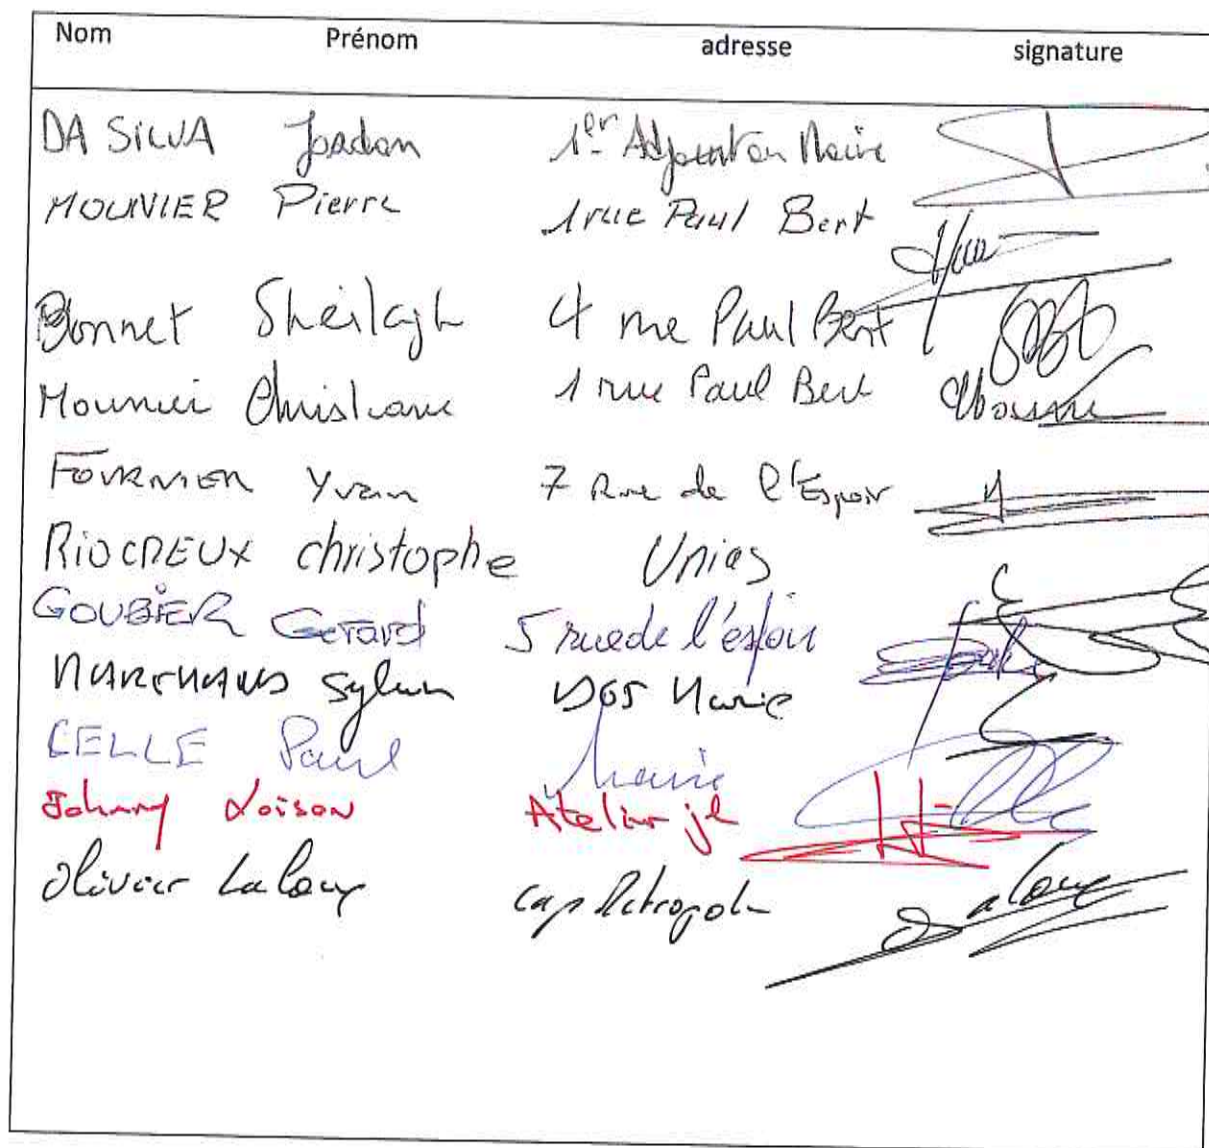 Nom Prénom adresse signature
DA SILVA Jordan 1er Adjoint au Maire
MOUNIER Pierre 1 rue Paul Bert
Bonnet Sheilagh 4 rue Paul Bert
Mounier Christiane 1 rue Paul Bert
FOURNIER Yvan 7 Rue de l'Espoir
RIOCREUX christophe Unias
GOUBIER Gérard 5 rue de l'espoir
MARCHAND Sylvain Mairie
CELLE Paul Mairie
Johnny Loison Atelier jl
Olivier Laloux Cap Métropole